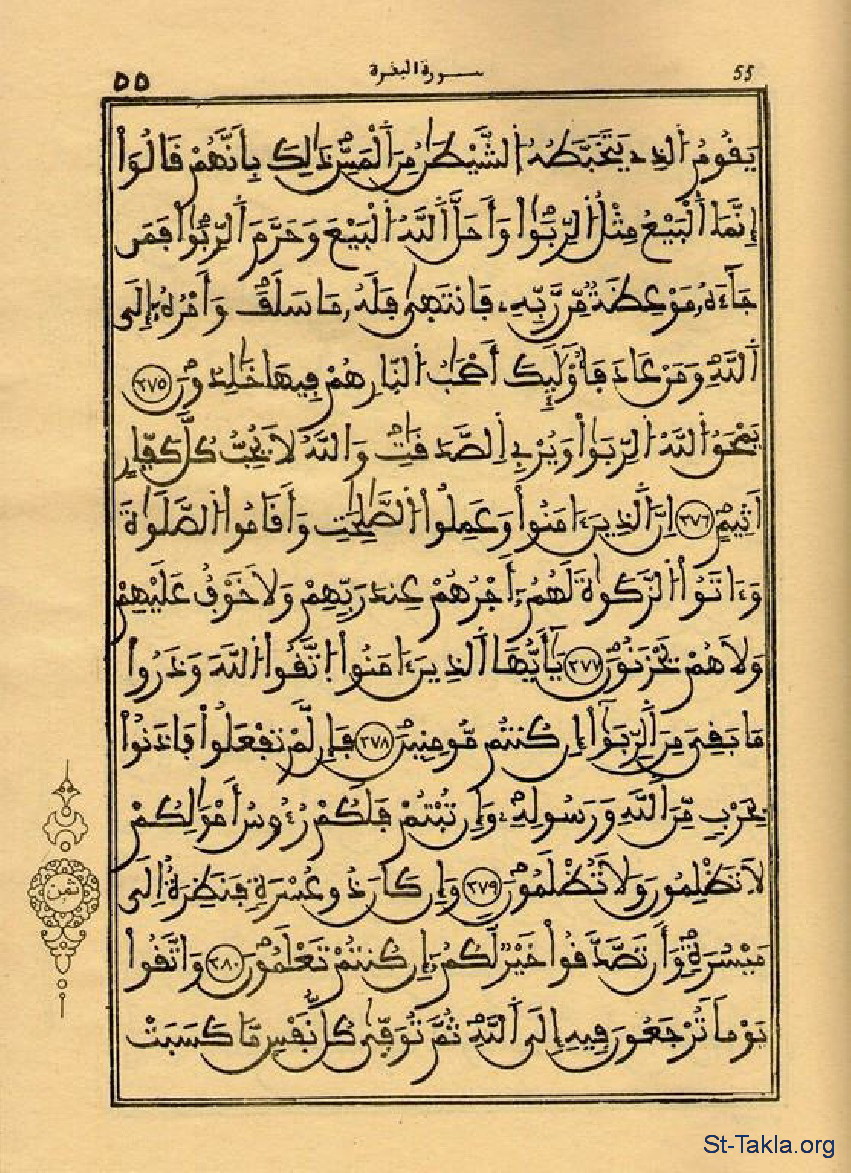 55 سورة البقرة ٥٥
يَقُومُ الَّذِي يَتَخَبَّطُهُ الشَّيْطَٰنُ مِنَ الْمَسِّ ذَٰلِكَ بِأَنَّهُمْ قَالُوٓاْ
إِنَّمَا الْبَيْعُ مِثْلُ الرِّبَوٰاْ وَأَحَلَّ اللَّهُ الْبَيْعَ وَحَرَّمَ الرِّبَوٰاْ فَمَن
جَآءَهُۥ مَوْعِظَةٌ مِّن رَّبِّهِۦ فَانتَهَىٰ فَلَهُۥ مَا سَلَفَ وَأَمْرُهُۥٓ إِلَى
اَللَّهِ وَمَنْ عَادَ فَأُوْلَٰٓئِكَ أَصْحَٰبُ النَّارِ هُمْ فِيهَا خَٰلِدُونَ ٢٧٥
يَمْحَقُ اللَّهُ الرِّبَوٰاْ وَيُرْبِي الصَّدَقَٰتِ وَاللَّهُ لَا يُحِبُّ كُلَّ كَفَّارٍ
أَثِيمٍ ٢٧٦ إِنَّ الَّذِينَ ءَامَنُواْ وَعَمِلُواْ الصَّٰلِحَٰتِ وَأَقَامُواْ الصَّلَوٰةَ
وَءَاتَوُاْ الزَّكَوٰةَ لَهُمُۥٓ أَجْرُهُمْ عِندَ رَبِّهِمْ وَلَا خَوْفٌ عَلَيْهِمْ
وَلَا هُمْ يَحْزَنُونَ ٢٧٧ يَٰٓأَيُّهَا الَّذِينَ ءَامَنُواْ اتَّقُواْ اللَّهَ وَذَرُواْ
مَا بَقِيَ مِنَ الرِّبَوٰٓاْ إِن كُنتُم مُّومِنِينَ ٢٧٨ فَإِن لَّمْ تَفْعَلُواْ فَاذَنُواْ
بِحَرْبٍ مِّنَ اللَّهِ وَرَسُولِهِۦ وَإِن تُبْتُمْ فَلَكُمْ رُءُوسُ أَمْوَٰلِكُمْ
لَا تَظْلِمُونَ وَلَا تُظْلَمُونَ ٢٧٩ وَإِن كَانَ ذُو عُسْرَةٍ فَنَظِرَةٌ إِلَىٰ
مَيْسُرَةٍ وَأَن تَصَّدَّقُواْ خَيْرٌ لَّكُمُۥٓ إِن كُنتُمْ تَعْلَمُونَ ٢٨٠ وَاتَّقُواْ
يَوْمًا تُرْجَعُونَ فِيهِ إِلَى اللَّهِ ثُمَّ تُوَفَّىٰ كُلُّ نَفْسٍ مَّا كَسَبَتْ
ثمن
St-Takla.org